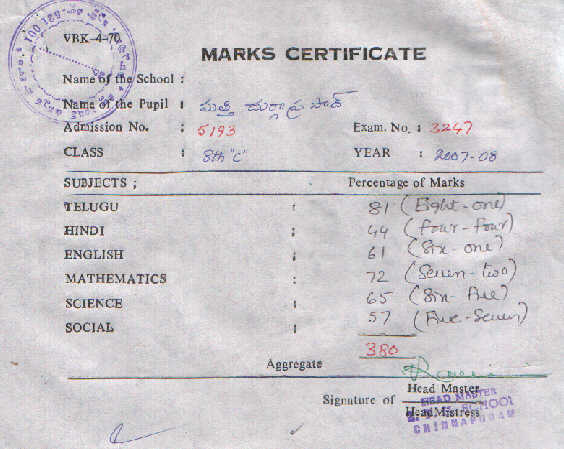 VRK-4-70
MARKS CERTIFICATE
Name of the School :
Name of the Pupil :
Admission No. : 5193 Exam. No. : 3247
CLASS : 8th "C" YEAR : 2007-08
SUBJECTS ; Percentage of Marks
TELUGU : 81 (Eight-one)
HINDI : 44 (Four-Four)
ENGLISH : 61 (Six-one)
MATHEMATICS : 72 (Seven-two)
SCIENCE : 65 (Six-Five)
SOCIAL : 57 (Five-Seven)
380
Aggregate
Head Master
Signature of
Head Mistress
HEAD MASTER
SCHOOL
CHINNAPURAM